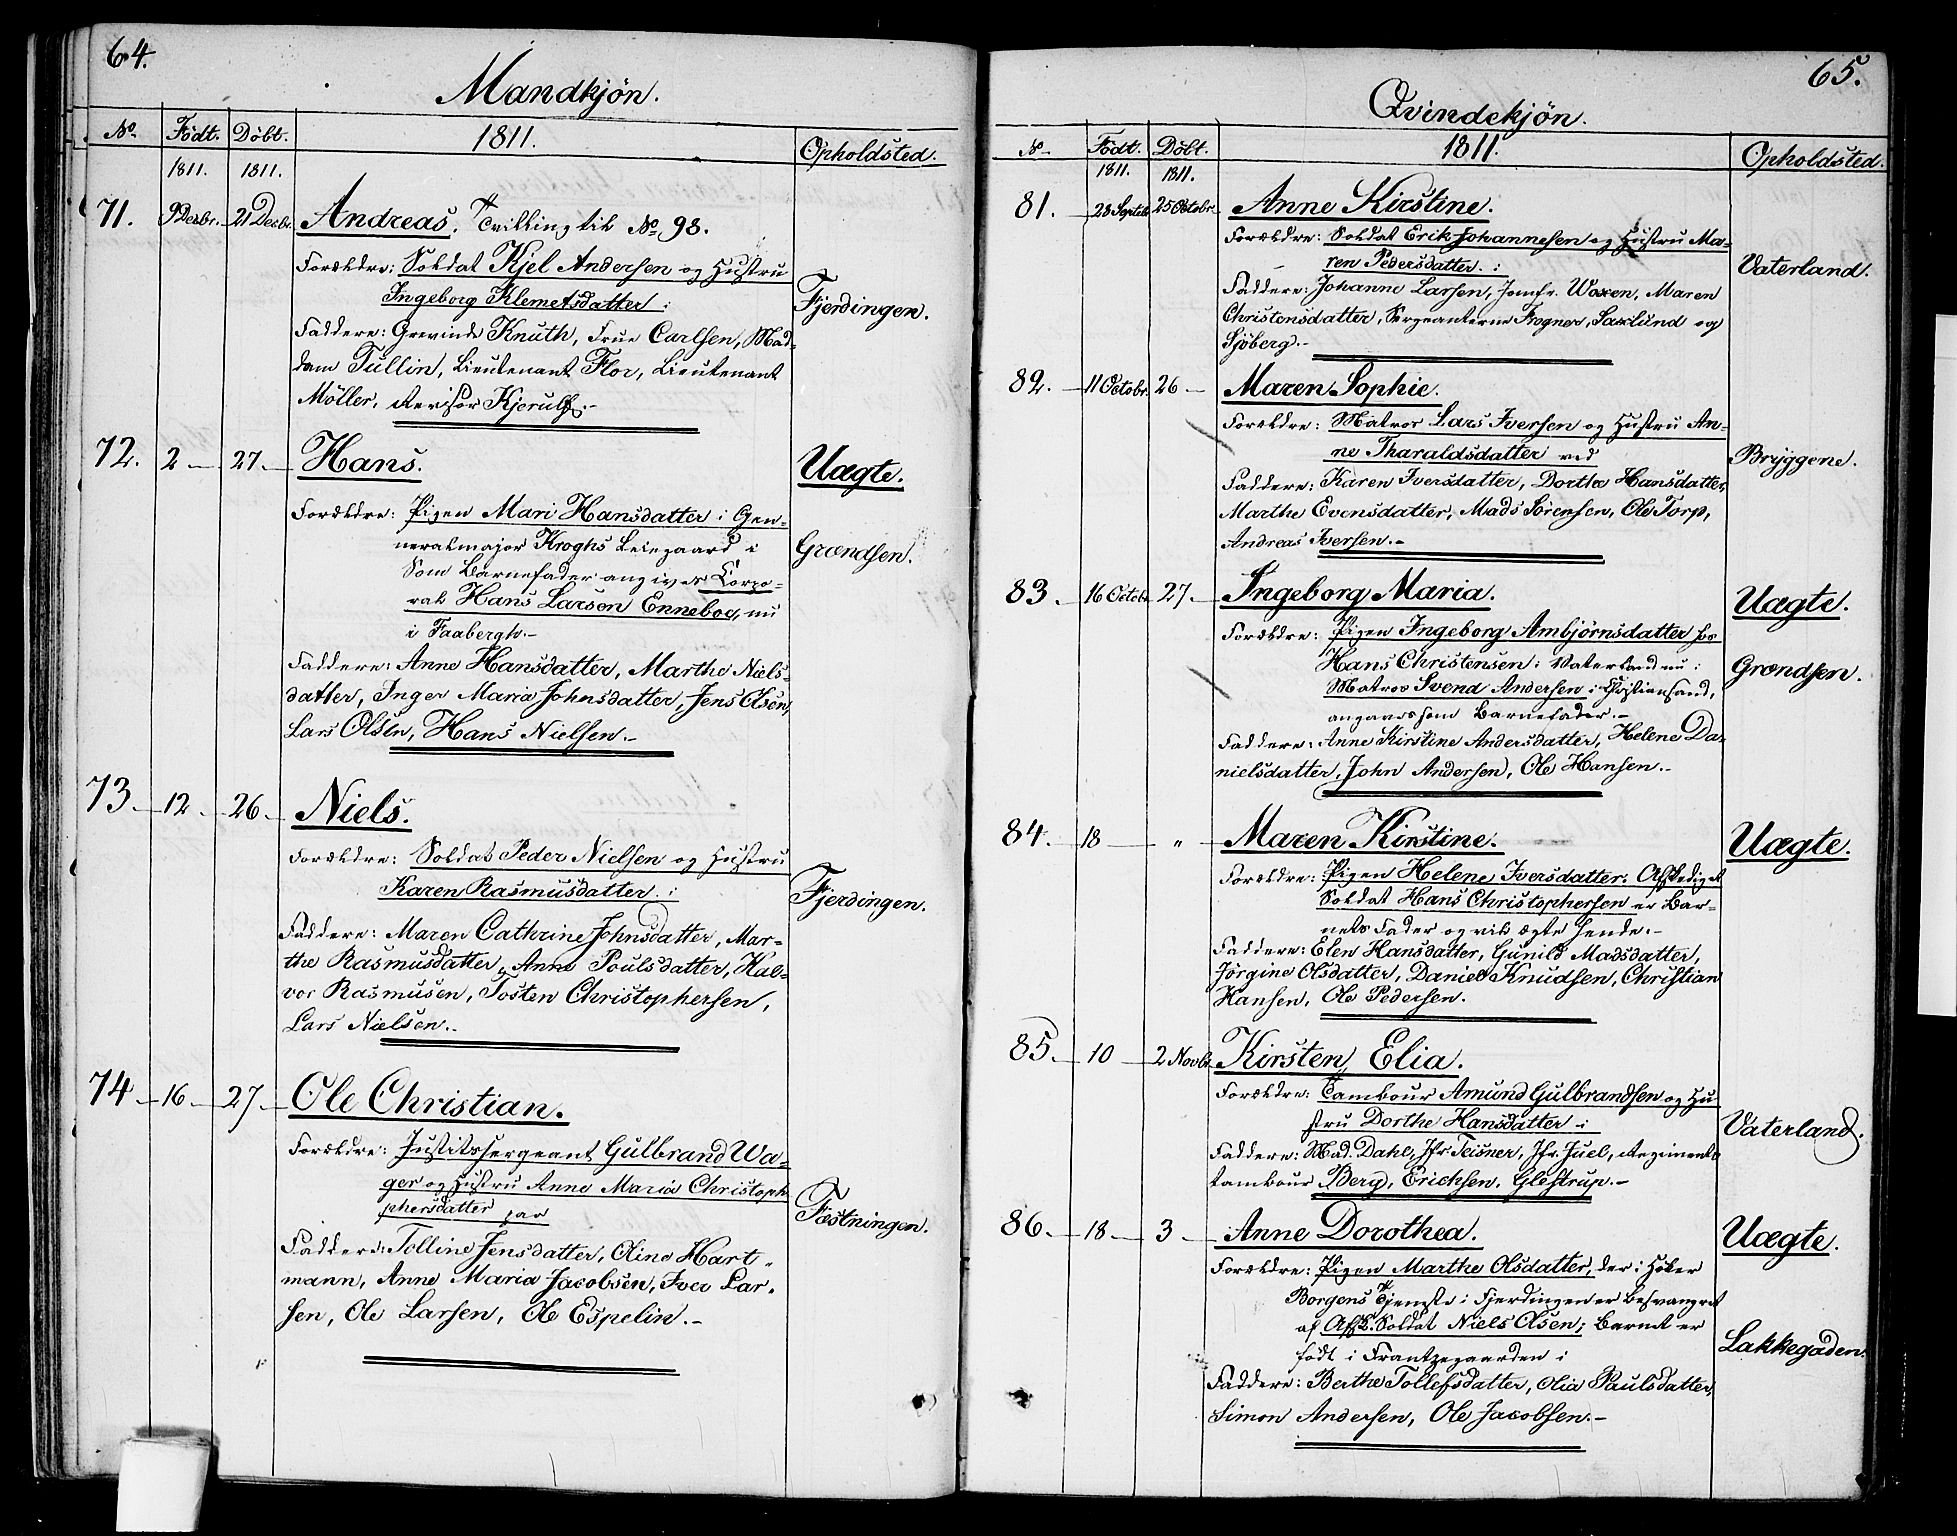 64.
Mandkjön.
No. Födt. Döbt. 1811. Opholdsted.
1811. 1811.
71. 9 Decbr. 21 Decbr. Andreas. Tvilling til No. 98.
Forældre: Soldat Kjel Andersen og Hustru
Ingeborg Klemetsdatter i
Fjerdingen.
Faddere: Grevinde Knuth, Frue Carlsen, Mad-
dam Tullin, Lieutenant Flor, Lieutenant
Möller, Revisor Kjerulf.-
72. 2 - 27. - Hans. Uægte.
Forældre: Pigen Mari Hansdatter i Gen-
neralmajor Kroghs Leiegaard i
Grændsen.
Som Barnefader angives Corpo-
ral Hans Larsen Enneboe, nu
i Faabergh.-
Faddere: Anne Hansdatter, Marthe Niels-
datter, Inger Maria Johnsdatter, Jens Olsen,
Lars Olsen, Hans Nielsen.-
73. - 12. - 26. - Niels.
Forældre: Soldat Peder Nielsen og Hustru
Karen Rasmusdatter i
Fjerdingen.
Faddere: Maren Cathrine Johnsdatter, Mar-
the Rasmusdatter, Anne Poulsdatter, Hal-
vor Rasmusen, Tosten Christophersen,
Lars Nielsen.-
74. - 16. - 27. - Ole Christian.
Forældre: Justitssergeant Gulbrand Wa-
ger og Hustru Anne Maria Christoph-
phersdatter paa
Fæstningen.
Faddere: Tolline Jensdatter, Oline Hart-
mann, Anne Maria Jacobsen, Iver Lar-
sen, Ole Larsen, Ole Espelin.-
65.
Qvindekjön.
No Födt. Döbt. 1811. Opholdsted.
1811. 1811.
81. - 28 Septbr 25 Octobr. Anne Kirstine.
Forældre: Soldat Erik Johannesen og Hustru Ma-
ren Pedersdatter i
Vaterland.
Faddere: Johanne Larsen, Jomfr. Woxen, Maren
Christensdatter, Sergeanterne Frogner, Saxlund og
Sjöberg.-
82. - 11 Octobr. 26 - Maren Sophie.
Forældre: Matros Lars Iversen og Hustru An-
ne Tharaldsdatter ved
Bryggene.
Faddere: Karen Iversdatter, Dorthe Hansdatter,
Marthe Evensdatter, Mads Sörensen, Ole Torp,
Andreas Iversen.-
83. - 16 Octobr 27. - Ingeborg Maria. Uægte.
Forældre: Pigen Ingeborg Ambjörnsdatter hos
Hans Christensen i Vaterland nu i
Grændsen.
Matros Svend Andersen i Christiansand,
angaves som Barnefader.-
Faddere: Anne Kirstine Andersdatter, Helene Da-
nielsdatter, John Andersen, Ole Hansen.-
84. - 18 - " - Maren Kirstine. Uægte.
Forældre: Pigen Helene Iversdatter. Afskediget
Soldat Hans Christophersen er Bar-
nets Fader og vil ægte hende.-
Faddere: Elen Hansdatter, Gunild Madsdatter,
Jörgine Olsdatter, Daniel Knudsen, Christian
Hansen, Ole Pedersen.
85. - 10 - 2 Novbr. Kirsten Elia.
Forældre: Tambour Amund Gulbrandsen og Hu-
stru Dorthe Hansdatter i
Vaterland.
Faddere: Mad. Dahl, Jfr. Teisner, Jfr. Juel, Regiments
tambour Berg, Erichsen, Glestrup.-
86. - 18 - 3 - Anne Dorothea. Uægte.
Forældre: Pigen Marthe Olsdatter, der i Höker
Borgens Tjeneste i Fjerdingen er besvangret
af Afsk. Soldat Niels Olsen; Barnet er
födt i Frantzegaarden i
Lakkegaden.
Faddere: Berthe Tollefsdatter, Olia Paulsdatter,
Simon Andersen, Ole Jacobsen.-